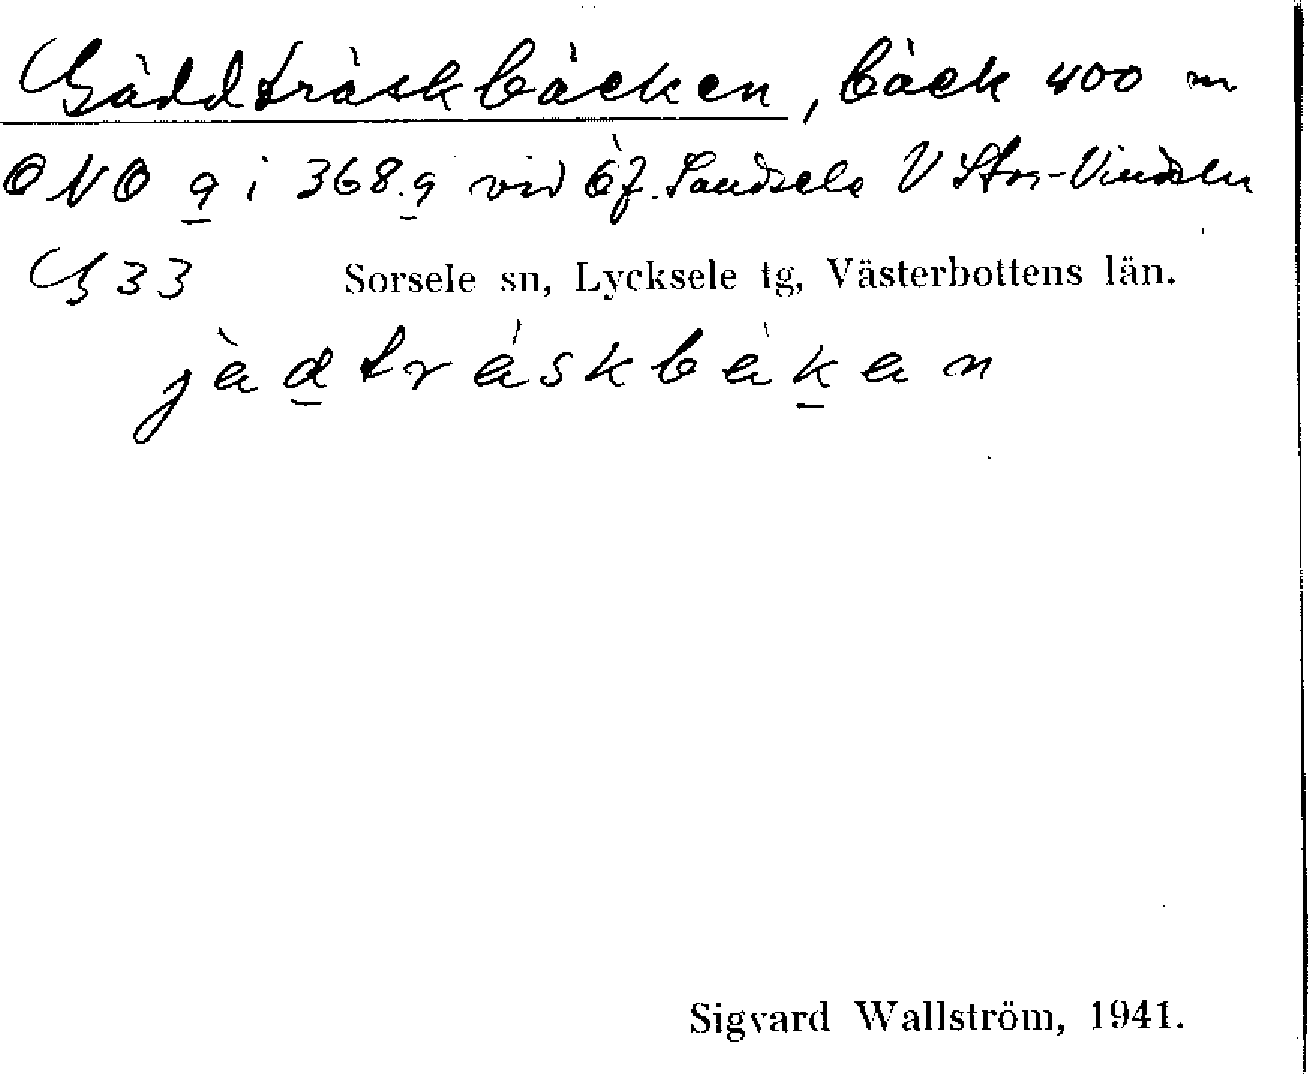 Gäddträskbäcken, bäck 400 m
ONO 9 i 368.9 vid Öf. Sandsele V Stor-Vindeln
G 33 Sorsele sn, Lycksele tg, Västerbottens län.
jàdtráskbàkan
Sigvard Wallström, 1941.